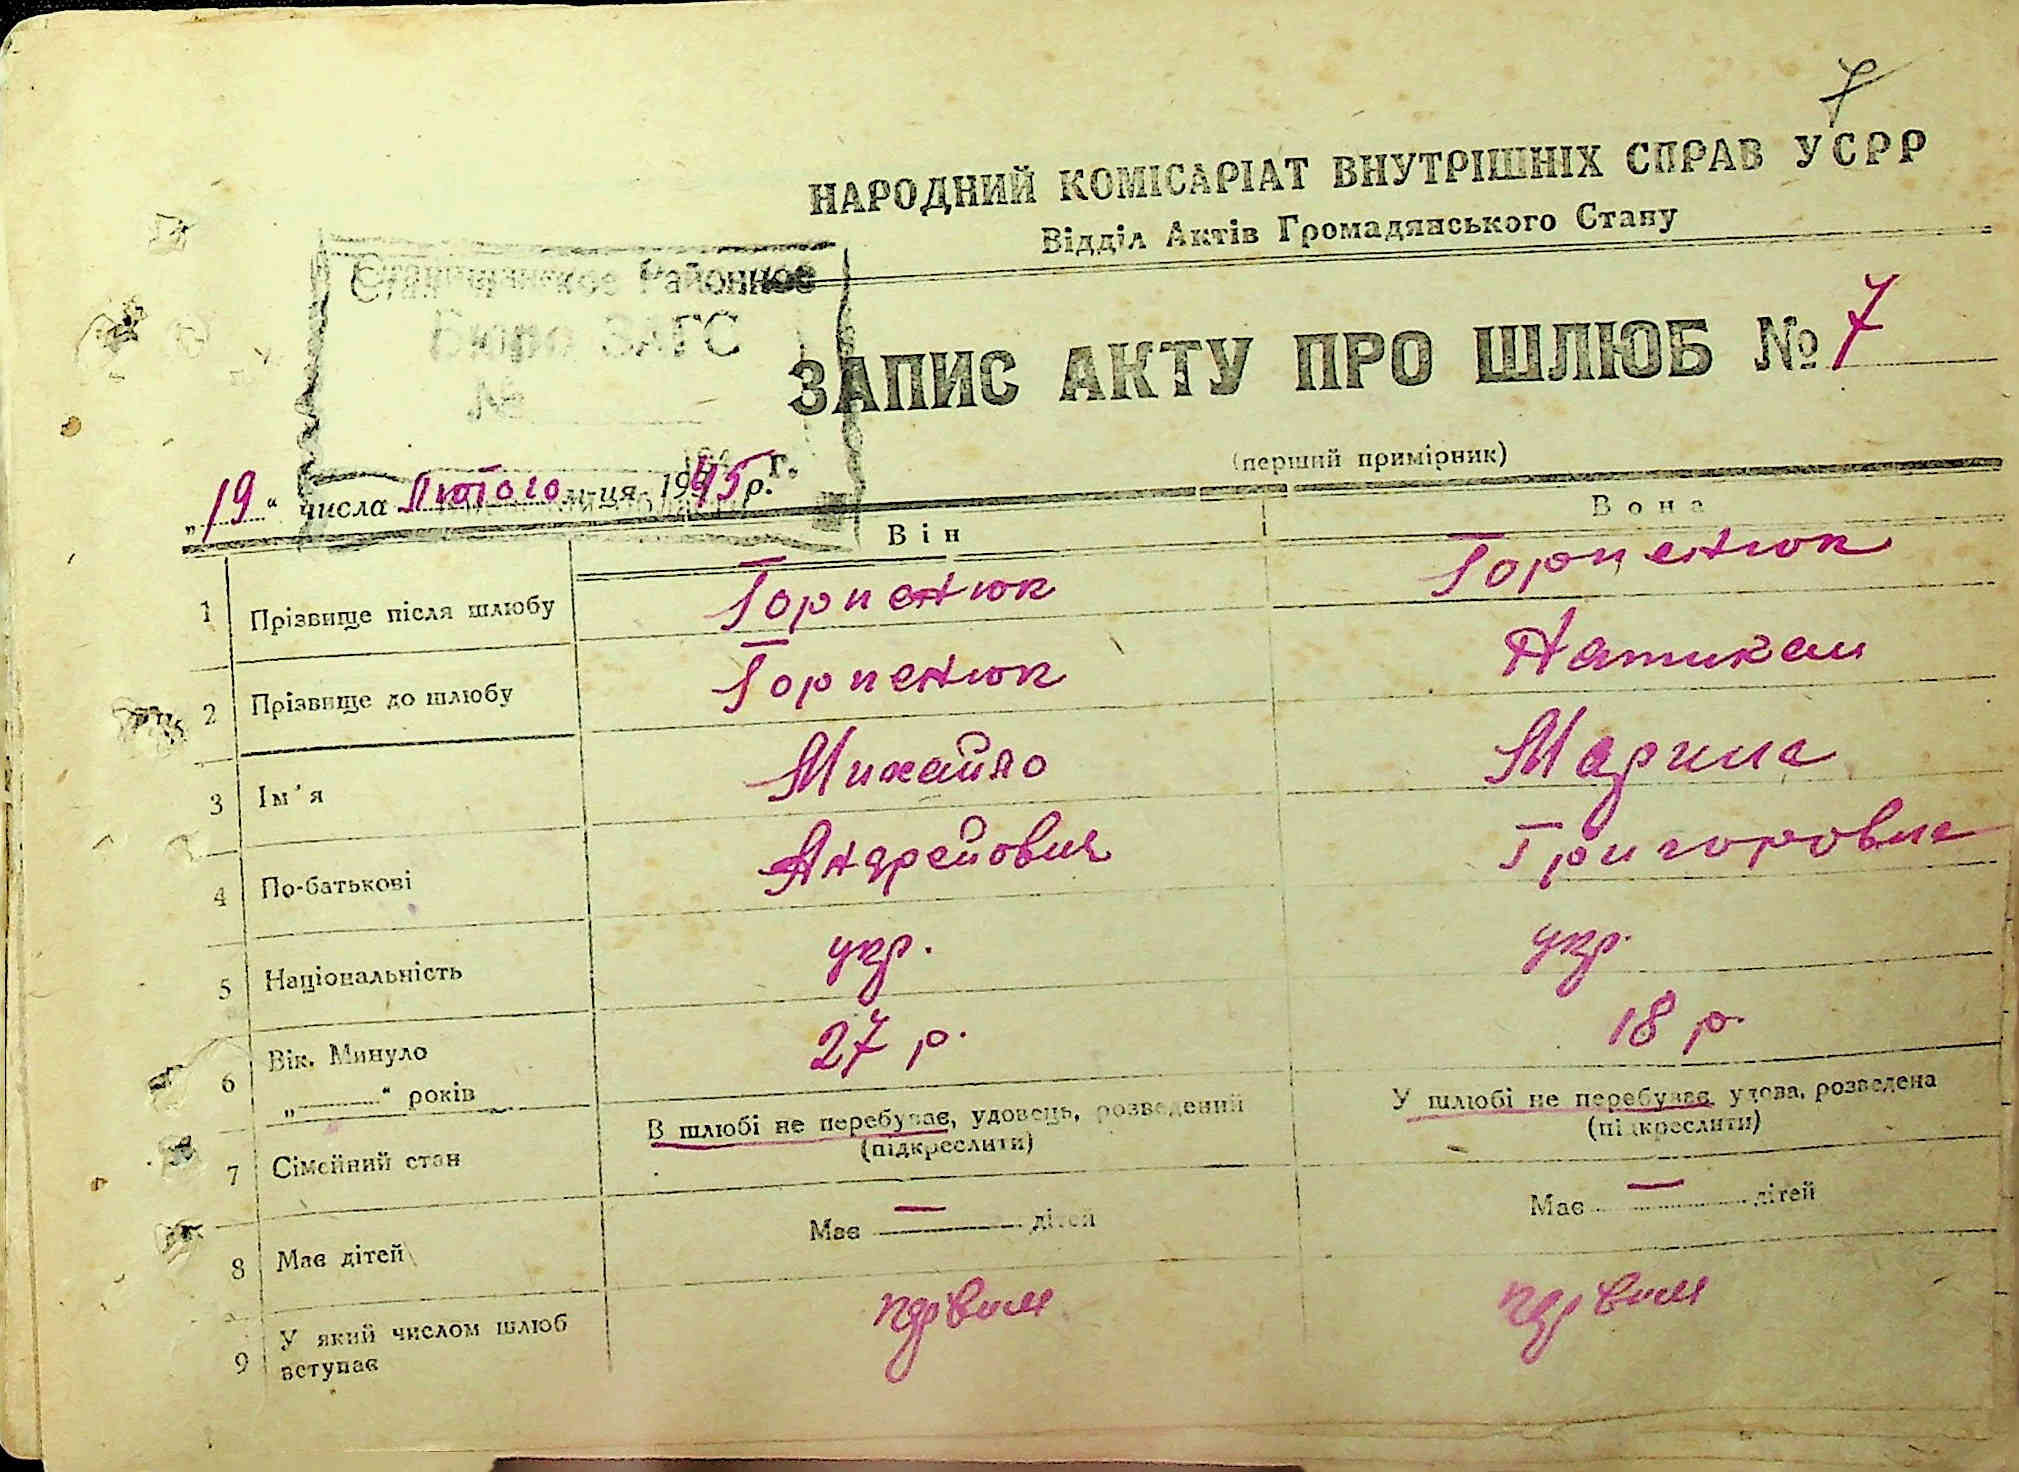 7
НАРОДНИЙ КОМІСАРІАТ ВНУТРІШНІХ СПРАВ УСРР
Відділ Актів Громадянського Стану
Районное
Бюро ЗАГС
№
ЗАПИС АКТУ ПРО ШЛЮБ № 7
(перший примірник)
„19“ числа Лютого м-ця 1945 р.
Він Вона
1 Прізвище після шлюбу Горпенюк Горпенюк
2 Прізвище до шлюбу Горпенюк
3 Ім'я Михайло Марина
4 По-батькові Андрейович Григоровна
5 Національність укр. укр.
6 Вік. Минуло 27 р. 18 р.
„ “ років
7 Сімейний стан В шлюбі не перебуває, удовець, розведений У шлюбі не перебуває, удова, розведена
(підкреслити) (підкреслити)
8 Має дітей Має — дітей Має — дітей
9 У який числом шлюб
вступає